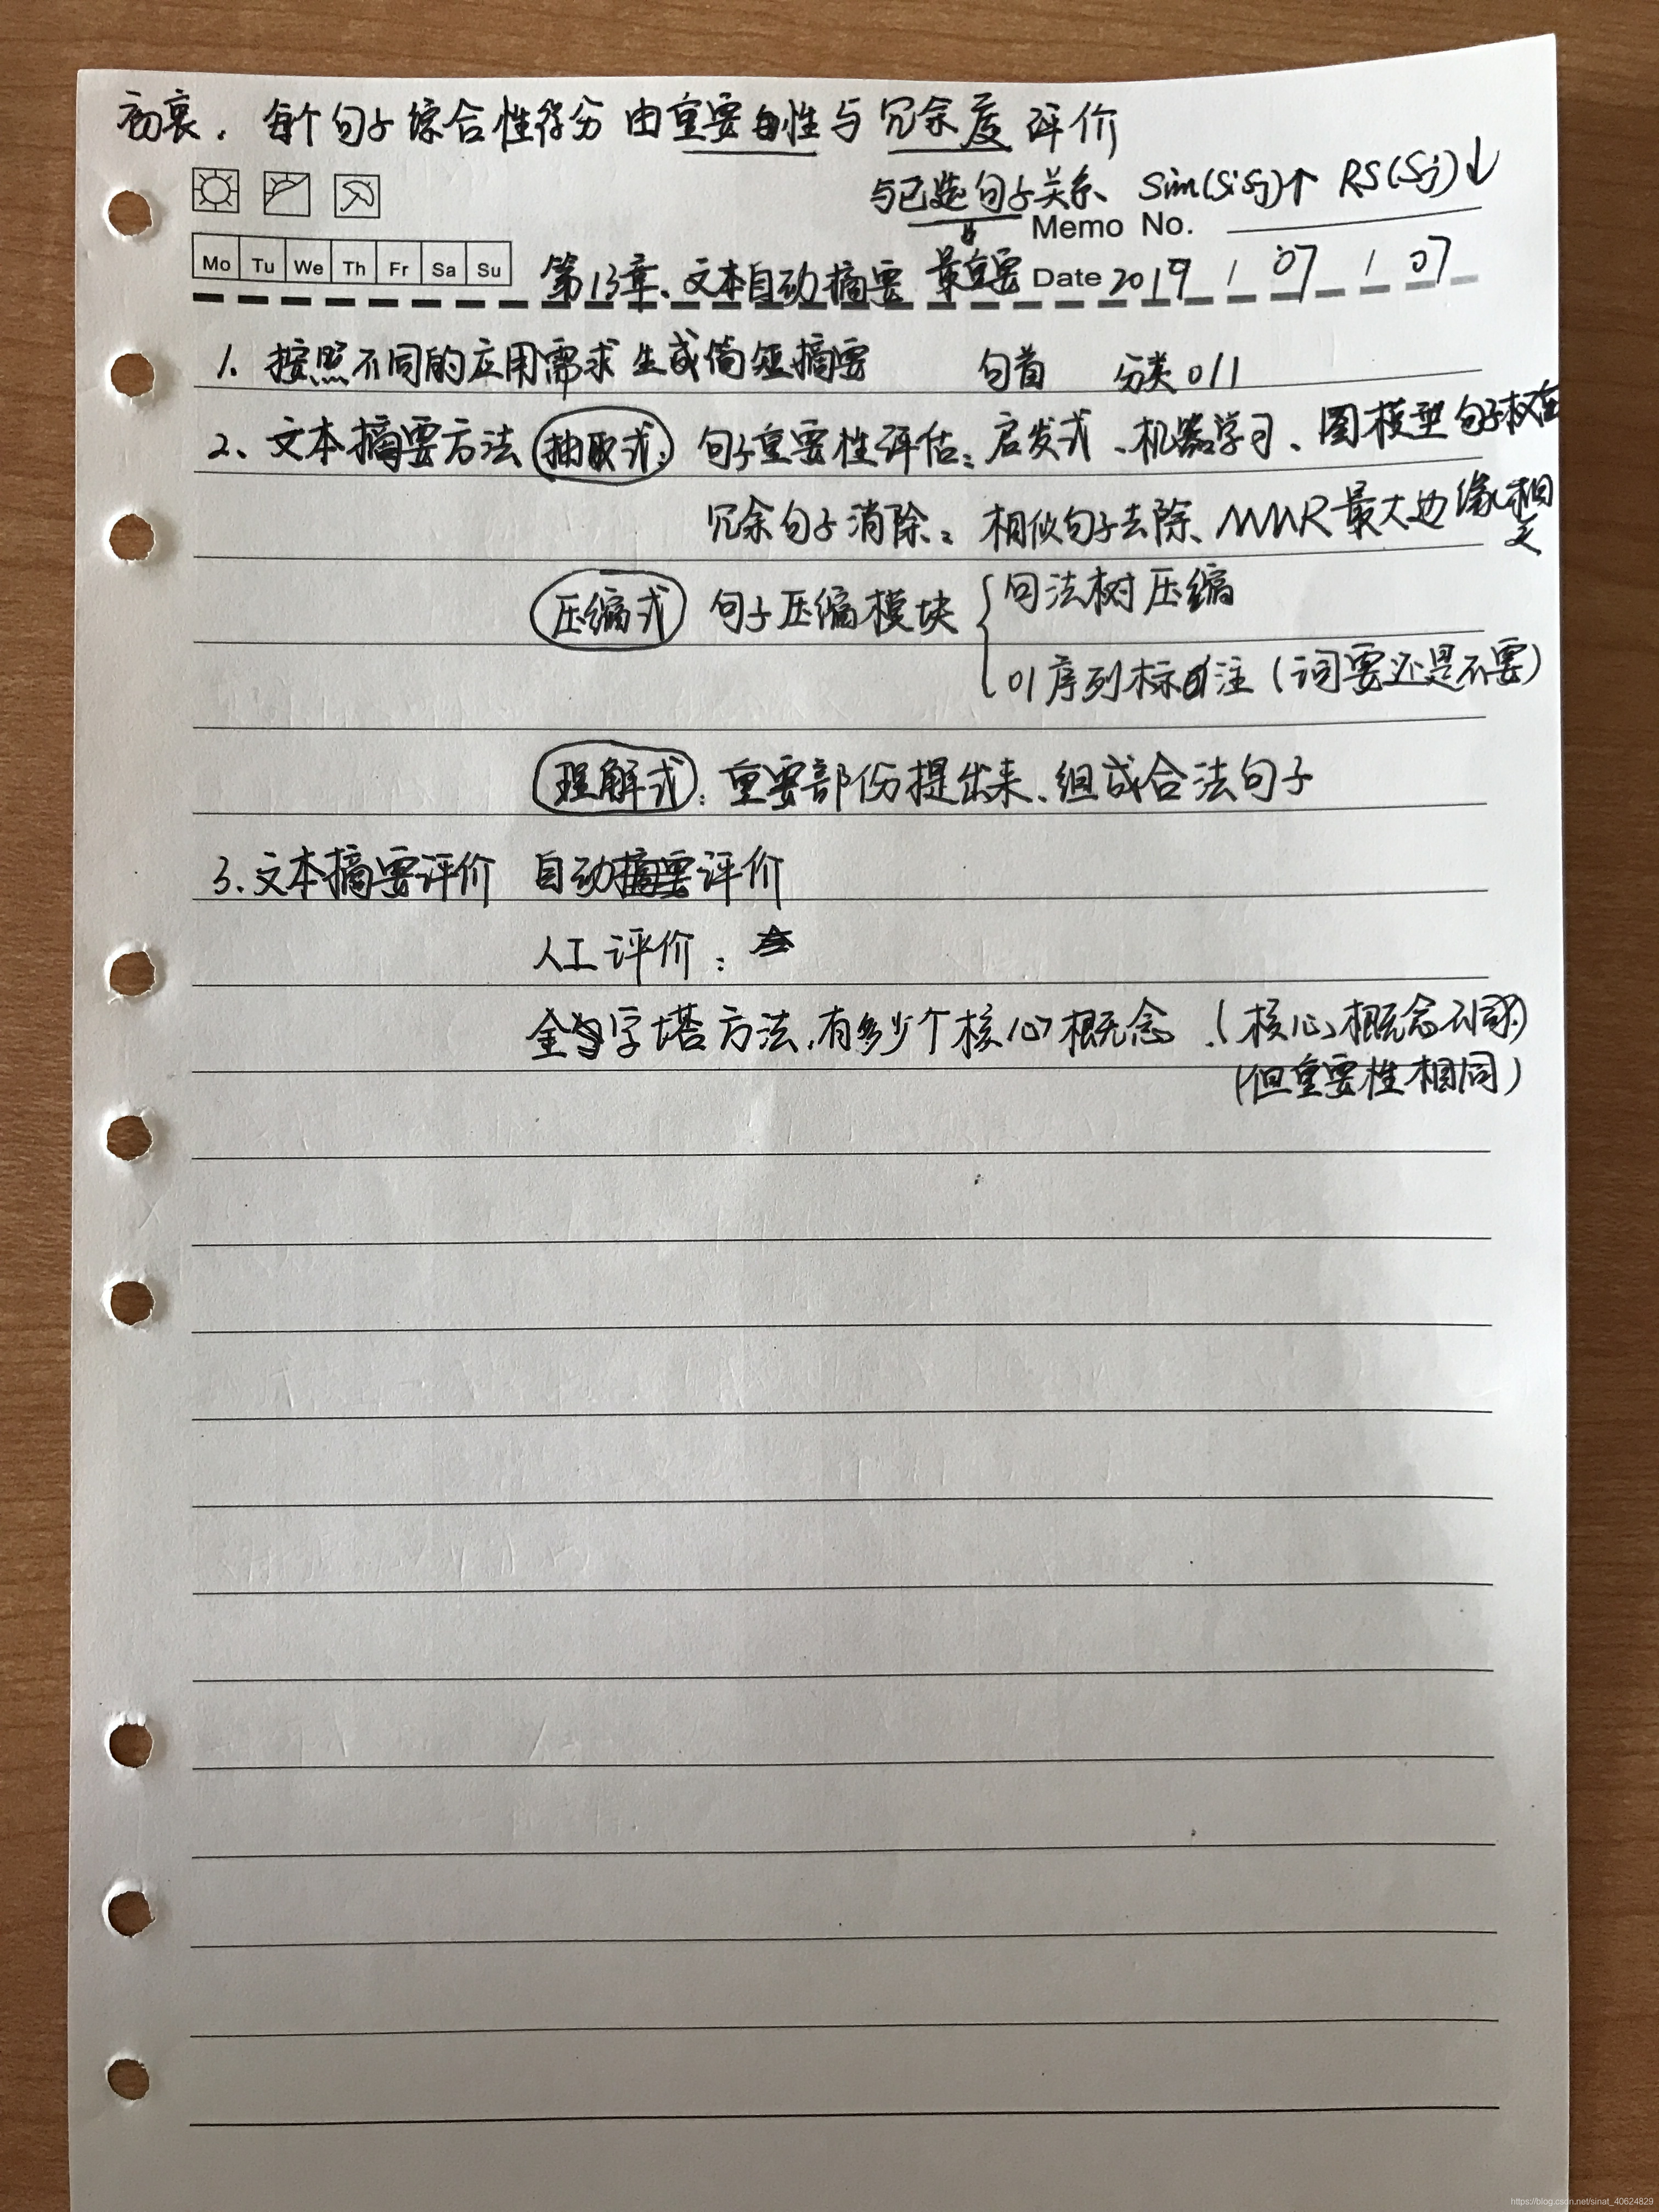 初衷. 每个句子综合性得分由重要性与冗余度评价
与已选句子关系、Sim(SiSj)↑ RS(Sj)↓
Memo No.
Mo Tu We Th Fr Sa Su
第13章、文本自动摘要 最重要 Date 2019 / 07 / 07
1. 按照不同的应用需求生成简短摘要 句首 分类 0/1
2、文本摘要方法 抽取式: 句子重要性评估: 启发式、机器学习、图模型 句子权重
冗余句子消除: 相似句子去除、MMR最大边缘相关
压缩式 句子压缩模块 { 句法树压缩
01序列标注 (词要还是不要)
理解式: 重要部份提出来、组成合法句子
3. 文本摘要评价 自动摘要评价
人工评价:
金字塔方法, 有多少个核心概念. (核心概念不同)
(但重要性相同)
https://blog.csdn.net/sinat_40624829